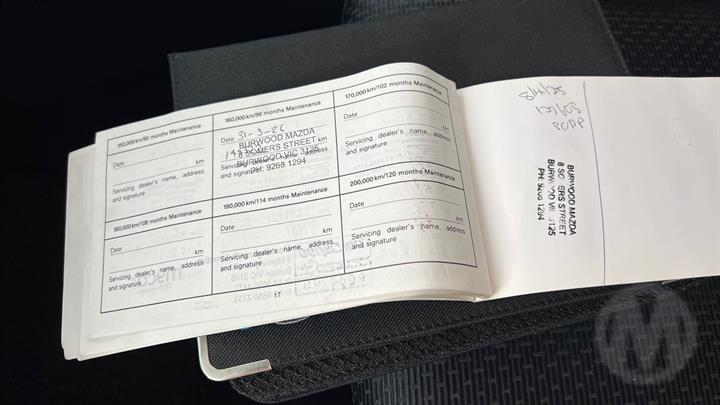 150,000 km/90 months Maintenance
Date
km
Servicing dealer's name, address
and signature
160,000 km/96 months Maintenance
Date 31-3-26
km
BURWOOD MAZDA
8 SOMERS STREET
BURWOOD VIC 3125
PH: 9268 1294
Servicing dealer's name, address
and signature
170,000 km/102 months Maintenance
Date
km
Servicing dealer's name, address
and signature
180,000 km/108 months Maintenance
Date
km
Servicing dealer's name, address
and signature
190,000 km/114 months Maintenance
Date
km
Servicing dealer's name, address
and signature
200,000 km/120 months Maintenance
Date
km
Servicing dealer's name, address
and signature
17
BURWOOD MAZDA
8 SOMERS STREET
BURWOOD VIC 3125
PH: 9268 1294
M